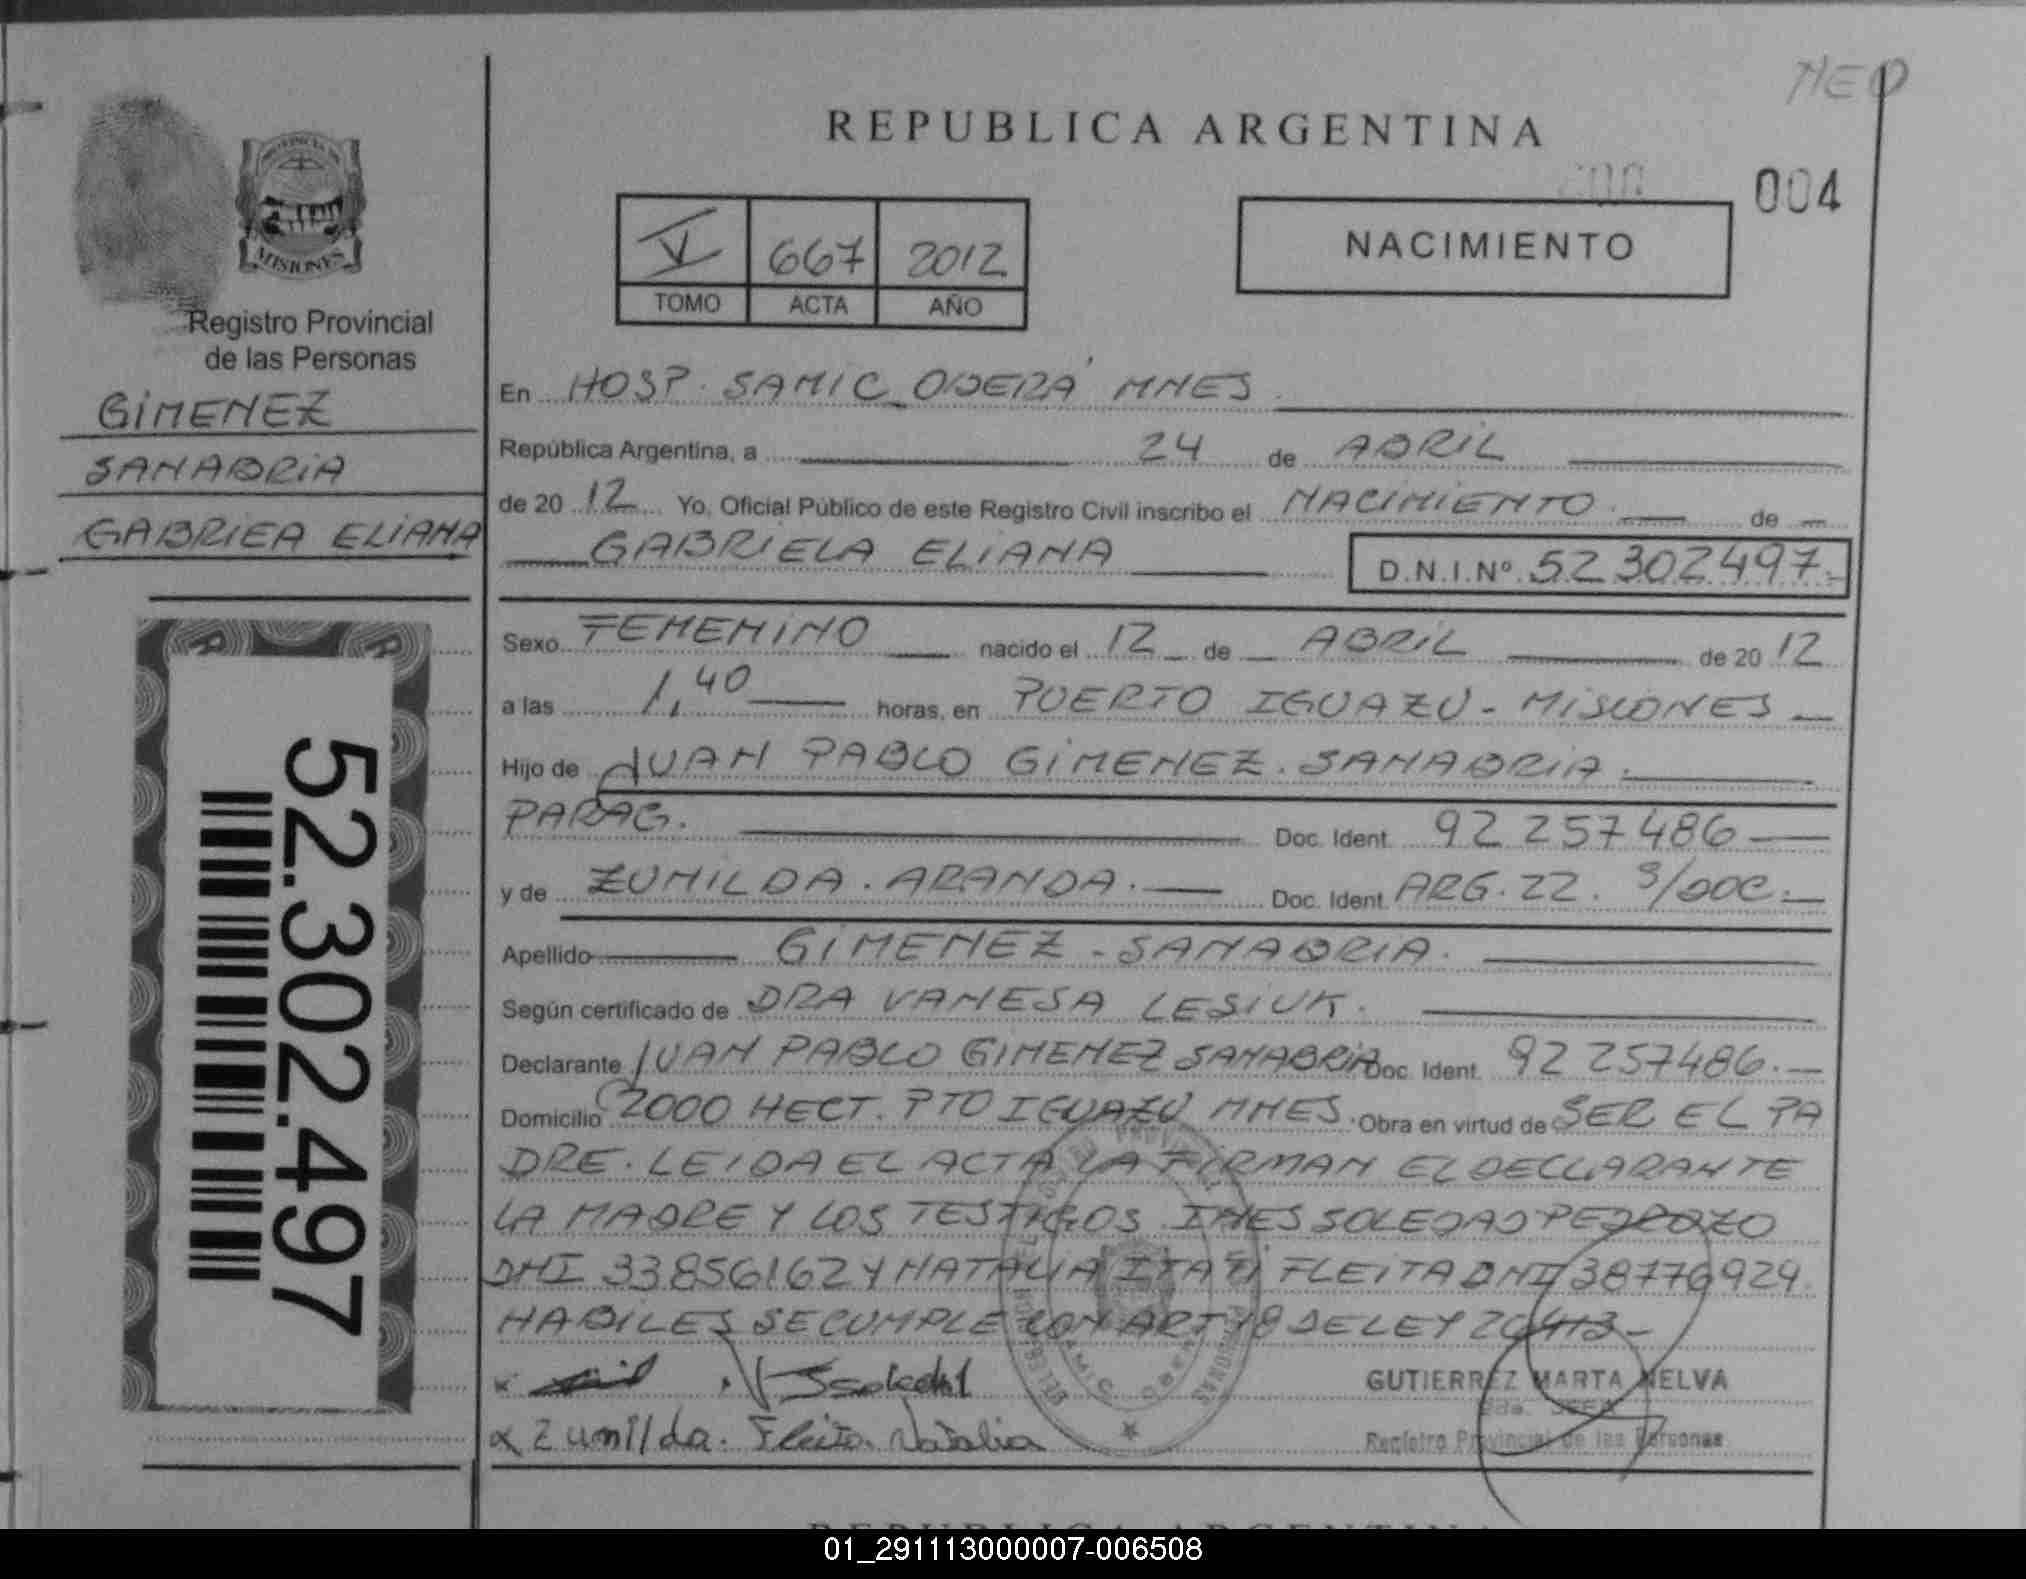 NEO
REPUBLICA ARGENTINA
004
PROVINCIA DE
MISIONES
Registro Provincial
de las Personas
GIMENEZ
SANABRIA
GABRIEA ELIANA
V 667 2012
TOMO ACTA AÑO
NACIMIENTO
En HOSP. SAMIC OBERÁ MNES
República Argentina, a 24 de ABRIL
de 20 12 Yo, Oficial Público de este Registro Civil inscribo el NACIMIENTO. de
GABRIELA ELIANA D.N.I.Nº 52302497
Sexo FEMENINO nacido el 12 de ABRIL de 20 12
a las 1,40 horas, en PUERTO IGUAZU - MISIONES
Hijo de JUAN PABLO GIMENEZ. SANABRIA.
PARAG. Doc. Ident. 92 257486
y de ZUNILDA. ARANDA. Doc. Ident. ARG. 22. S/DOC.
Apellido GIMENEZ - SANABRIA.
Según certificado de DRA VANESA LESIUK.
Declarante JUAN PABLO GIMENEZ SANABRIA Doc. Ident. 92 257486.
Domicilio 2000 HECT. PTO IGUAZU MNES. Obra en virtud de SER EL PA
DRE. LEIDA EL ACTA LA FIRMAN EL DECLARANTE
LA MADRE Y LOS TESTIGOS INES SOLEDAD PEDROZO
DNI 33856162 Y NATALIA ITATI FLEITA DNI 38776924.
HABILES SE CUMPLE CON ART 18 DE LEY 20413 -
GUTIERREZ MARTA NELVA
Registro Provincial de las Personas
x Zunilda. Fleita Natalia
52.302.497
REPUBLICA ARGENTINA
01_291113000007-006508